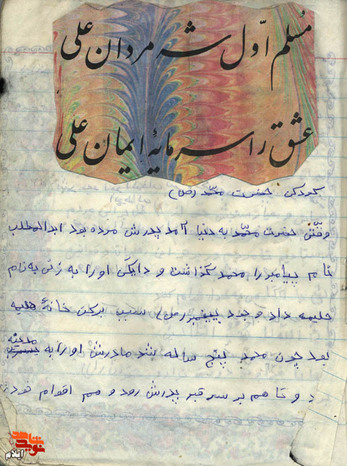 مُسلم اوّل شه مردان علی
عشق را سرمایهٔ ایمان علی
کودکی حضرت محمد (ص)
وقتی حضرت محمد به دنیا آمد پدرش مرده بود ابدالمطلب
نام پیامبر را محمد گذاشت و دایگی او را به زنی به نام
حلیمه داد وجود پیغمبر (ص) سبب برکت خانهٔ حلیمه
شد چون محمد پنج ساله شد مادرش او را به مدینه
برد تا هم بر سر قبر پدرش رود و هم اقوام خود
نوید شاهد
ایلام